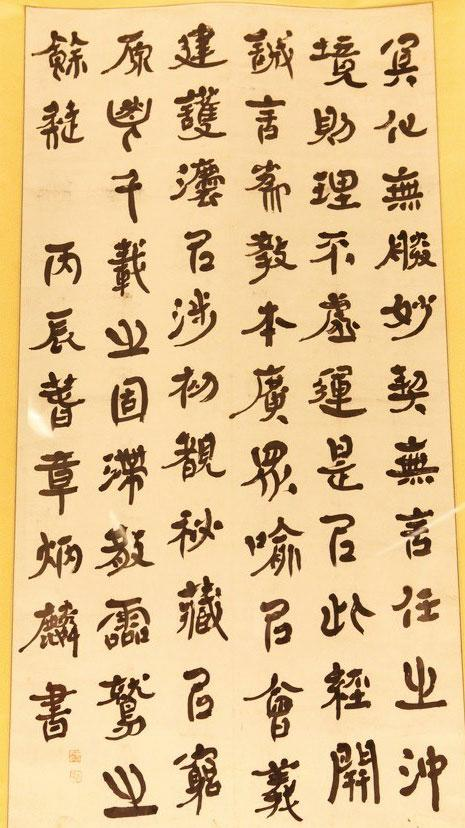 冥化無朕妙契無言任之沖
境則理不虛運是㠯此經開
誠言為教本廣眾喻㠯會義
建護灋㠯涉初覩秘藏㠯窮
原千載之固滯散靈鷲之
餘疑 丙辰萅章炳麟書